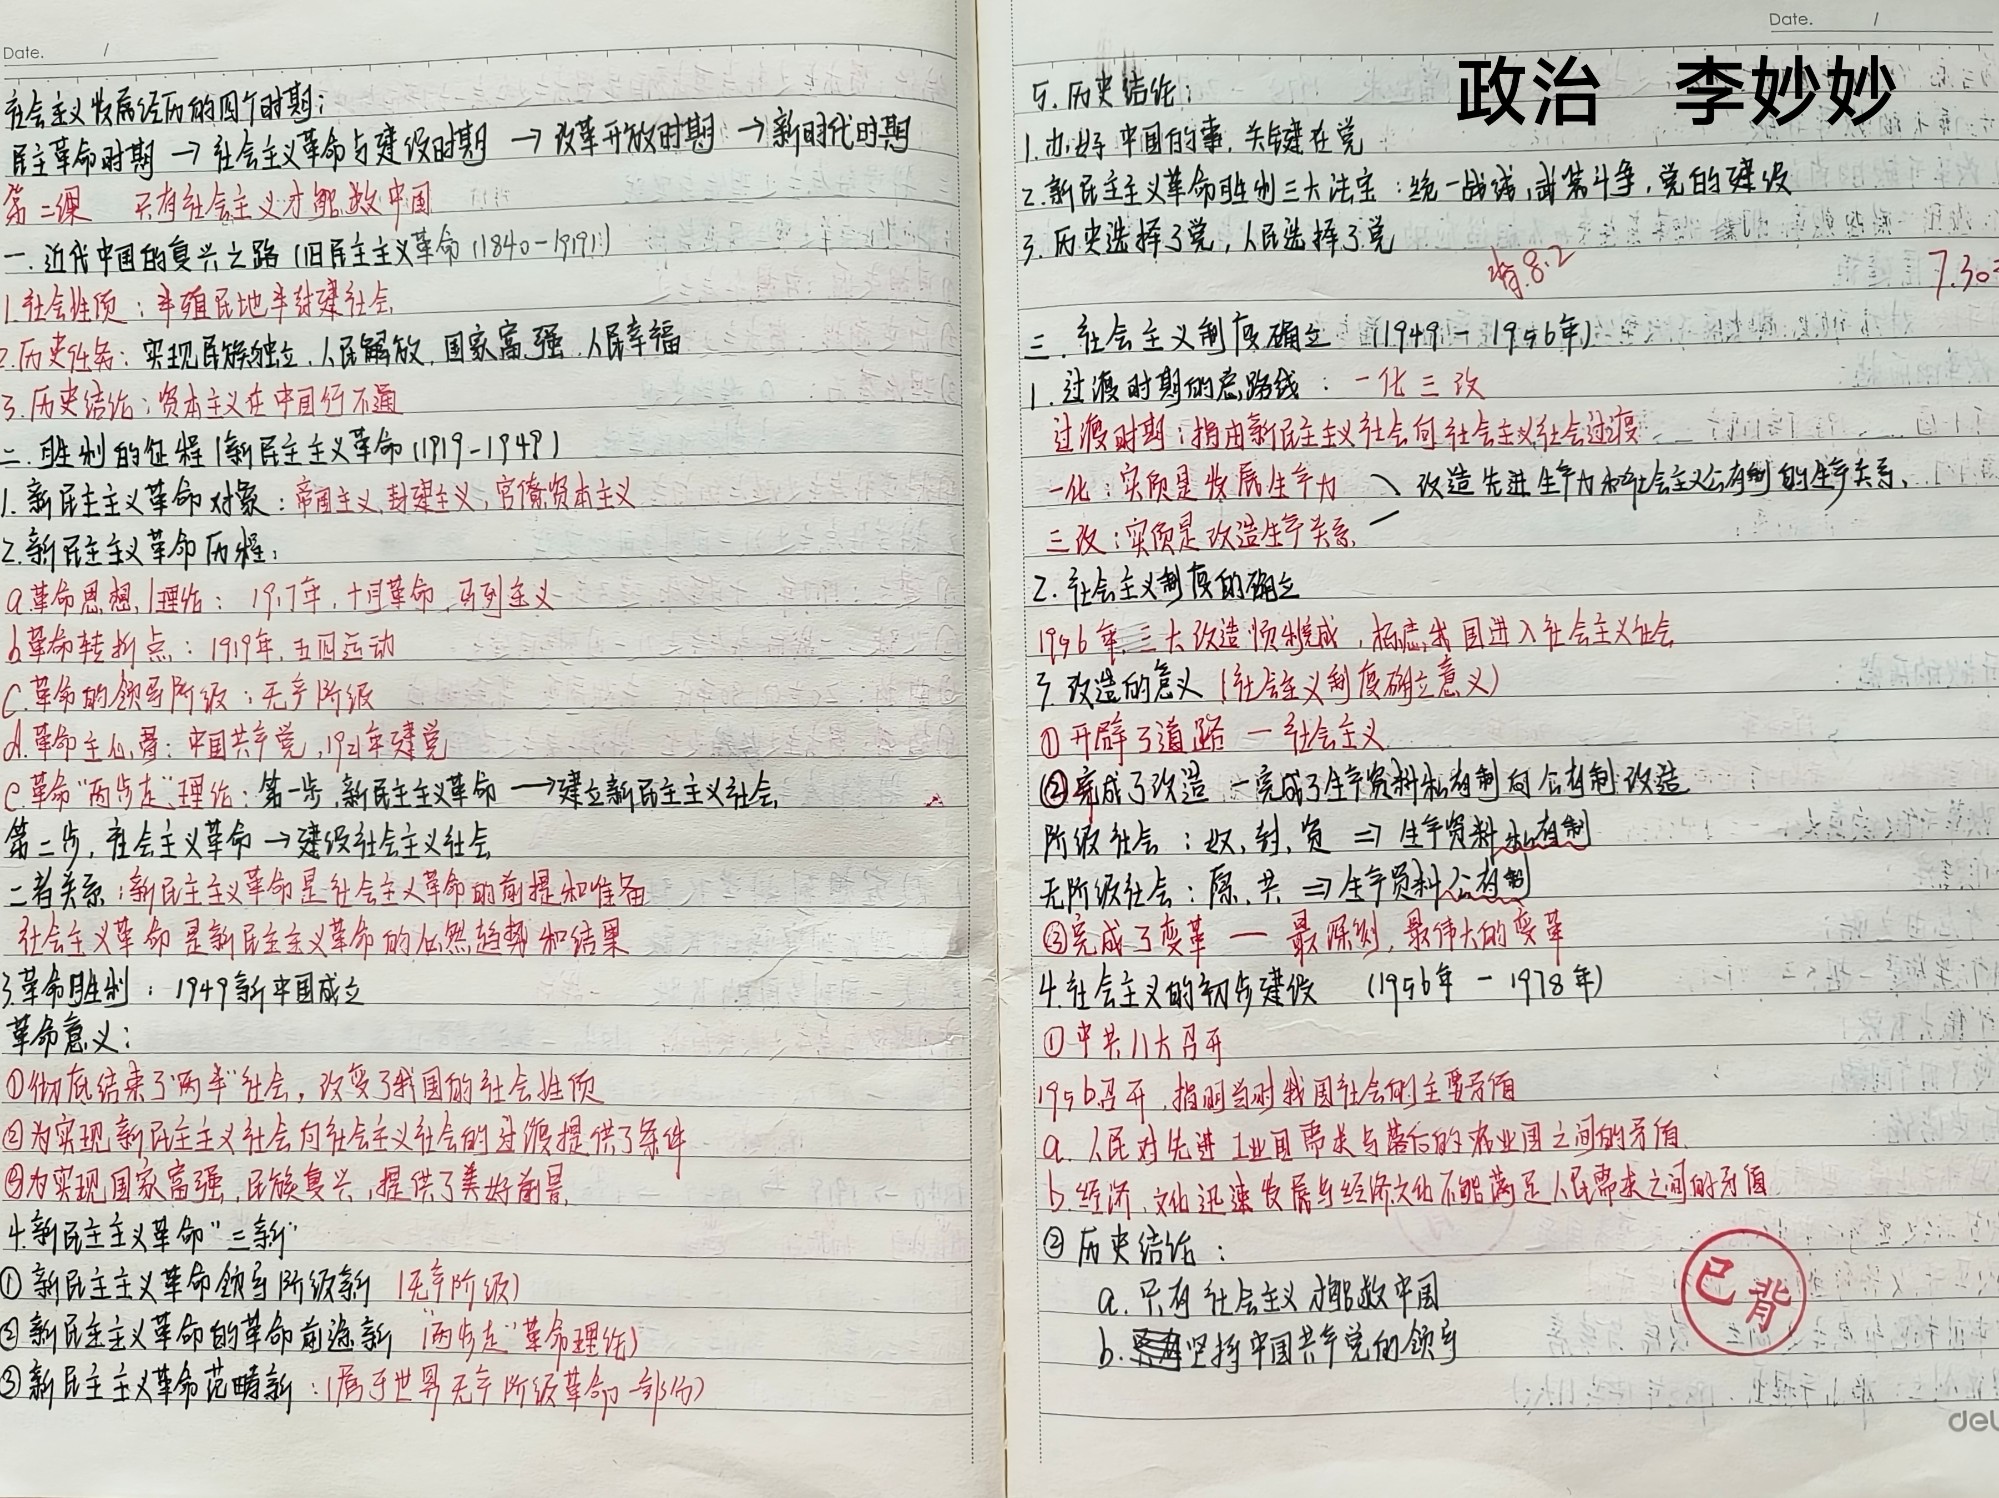 Date. /
社会主义发展经历的四个时期:
民主革命时期 → 社会主义革命与建设时期 → 改革开放时期 → 新时代时期
第二课 只有社会主义才能救中国
一. 近代中国的复兴之路 (旧民主主义革命 (1840-1919))
1. 社会性质: 半殖民地半封建社会.
2. 历史任务: 实现民族独立、人民解放、国家富强、人民幸福
3. 历史结论: 资本主义在中国行不通
二. 胜利的征程 (新民主主义革命 (1919-1949)
1. 新民主主义革命对象: 帝国主义, 封建主义, 官僚资本主义
2. 新民主主义革命历程:
a. 革命思想, 理论: 1917年, 十月革命, 马列主义
b. 革命转折点: 1919年, 五四运动
c. 革命的领导阶级: 无产阶级
d. 革命主心骨: 中国共产党, 1921年建党
e. 革命"两步走"理论: 第一步, 新民主主义革命 → 建立新民主主义社会
第二步, 社会主义革命 → 建设社会主义社会
二者关系: 新民主主义革命是社会主义革命的前提和准备
社会主义革命是新民主主义革命的必然趋势和结果
3. 革命胜利: 1949新中国成立
革命意义:
①彻底结束了"两半"社会, 改变了我国的社会性质
②为实现新民主主义社会向社会主义社会的过渡提供了条件
③为实现国家富强, 民族复兴, 提供了美好前景.
4. 新民主主义革命"三新"
① 新民主主义革命领导阶级新 (无产阶级)
② 新民主主义革命的革命前途新 ("两步走"革命理论)
③ 新民主主义革命范畴新: (属于世界无产阶级革命一部分)
Date. /
政治 李妙妙
5. 历史结论:
1. 办好中国的事, 关键在党
2. 新民主主义革命胜利三大法宝: 统一战线, 武装斗争, 党的建设
3. 历史选择了党, 人民选择了党
背8.2
7.30
三. 社会主义制度确立 (1949-1956年)
1. 过渡时期的总路线: 一化三改
过渡时期: 指由新民主主义社会向社会主义社会过渡
一化: 实质是发展生产力 改造先进生产力和社会主义公有制的生产关系.
三改: 实质是改造生产关系.
2. 社会主义制度的确立
1956年三大改造顺利完成, 标志我国进入社会主义社会
3. 改造的意义 (社会主义制度确立意义)
① 开辟了道路 — 社会主义
② 完成了改造 — 完成了生产资料私有制向公有制改造
阶级社会: 奴, 封, 资 ⇒ 生产资料私有制
无阶级社会: 原, 共 ⇒ 生产资料公有制
③完成了变革 — 最深刻, 最伟大的变革
4. 社会主义的初步建设 (1956年-1978年)
①中共八大召开
1956召开, 指明当时我国社会的主要矛盾
a. 人民对先进工业国需求与落后的农业国之间的矛盾.
b. 经济, 文化迅速发展与经济文化不能满足人民需求之间的矛盾
② 历史结论:
a. 只有社会主义才能救中国
b. 坚持中国共产党的领导
已背
del